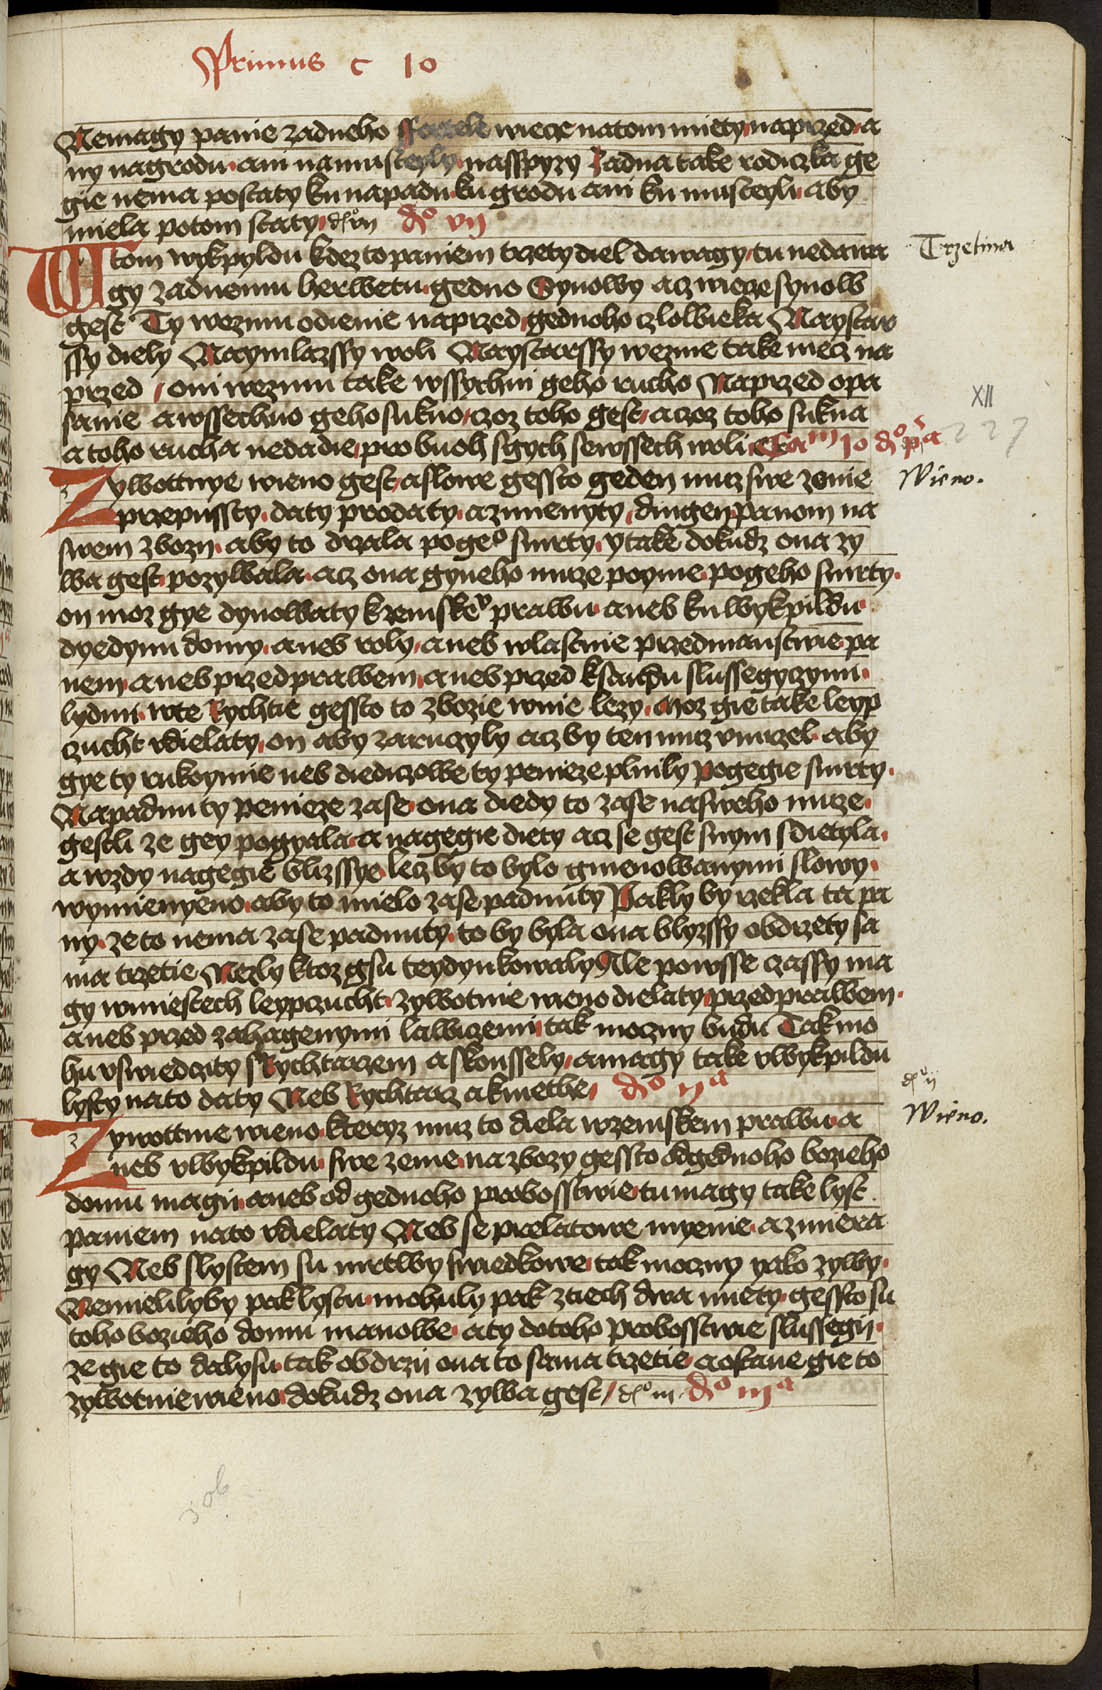 Primus c 10
Nemagy panie zadneho ffortele wiecze natom miety naprzed a
ny nagrodu ani namusteyly nasspyzy Zadna take rodiczka ge
gie nema postaty ku napadu ku grodu ani ku musteyli aby
miela potom staty dº vii
W tom wykpyldu kdez to paniem trzety diel dawagy tu nedawa
gy zadnemu herwetu gedno Synowy acz wiecze synow
gest Ty wezmu odienie naprzed gednoho czlowieka Naystar
ssy diely Naymlazssy woli Naystarssy wezme take mecz na
przed oni wezmu take wssychni geho rucho Naprzed opa
sanie a wssechno geho sukno czoz toho gest a czoz toho sukna
a toho rucha nedadie pro buoh sgych sewssech woli Cam 10 dº pa
Trzetina
XII
227
Zywottnye wieno gest a slowe gessto geden muz swe zenie
przepussty daty prodaty a zmienyty dingen panom na
swem zbozy aby to drzala po geº smrty y take dokudz ona zy
wa gest pozywala acz ona gyneho muze poyme po geho smrty
on moz gye dynowaty k zemske prawu aneb ku wykpildu
dyedynu domy aneb roly aneb wlastnie przed manstwie pa
nem aneb przed prawem aneb przed ksaffdu slussegyczymi
lydmi wte Rychtie gessto to zbozie wnie lezy moz gie take leyp
czucht vdielaty on aby zaruczyly acz by ten muz vmrzel aby
gye ty rukoymie neb diediczowe ty penieze plnily po gegie smrty
Napadnu ty penieze zase ona diedy to zase na sweho muze
gestli ze gey pogyala a na gegie diety acz se gest snym sdietyla
a wzdy na gegie blizssye lecz by to bylo gmenowanymi slowy
wymienyeno aby to mielo zase padnuty Pakly by rzekla ta pa
ny ze to nema zase padnuty to by byla ona blyzssy obdrzety sa
ma trzetie Nezly ktoz gsu teydynkowaly Ale powsse czassy ma
gy wmiestech leypczucht zywotnie wieno dielaty przed prawem
aneb przed zahagenymi lawiczemi tak moczny budu Tak mo
hu vswiedczity s Rychtarzem a skonssely a magy take vwykpildu
lysty nato daty Neb Rychtarz a kmethe dº iiª
Wieno.
dº ii
Wieno.
Zywottnie wieno kteryz muz to diela w zemskem prawu a
neb vwykpildu swe zeme na zbozy gessto od gednoho bozieho
domu magii aneb od gednoho probosstwie tu magy take lyst
paniem nato vdielaty Neb se prelatowe myenie a zmiera
gy Neb s lystem su mrtwy swiedkowe tak moczny yako zywy
Nemielilyby pak lystu mohuly pak z tiech dwa miety gessto su
toho bozieho domu manowe a ty dotoho probosstwie slussegii
ze gie to dalysu tak obdrzii ona to sama trzetie a ostane gie to
zywotnie wieno dokudz ona zywa gest dº iii dº iiiª